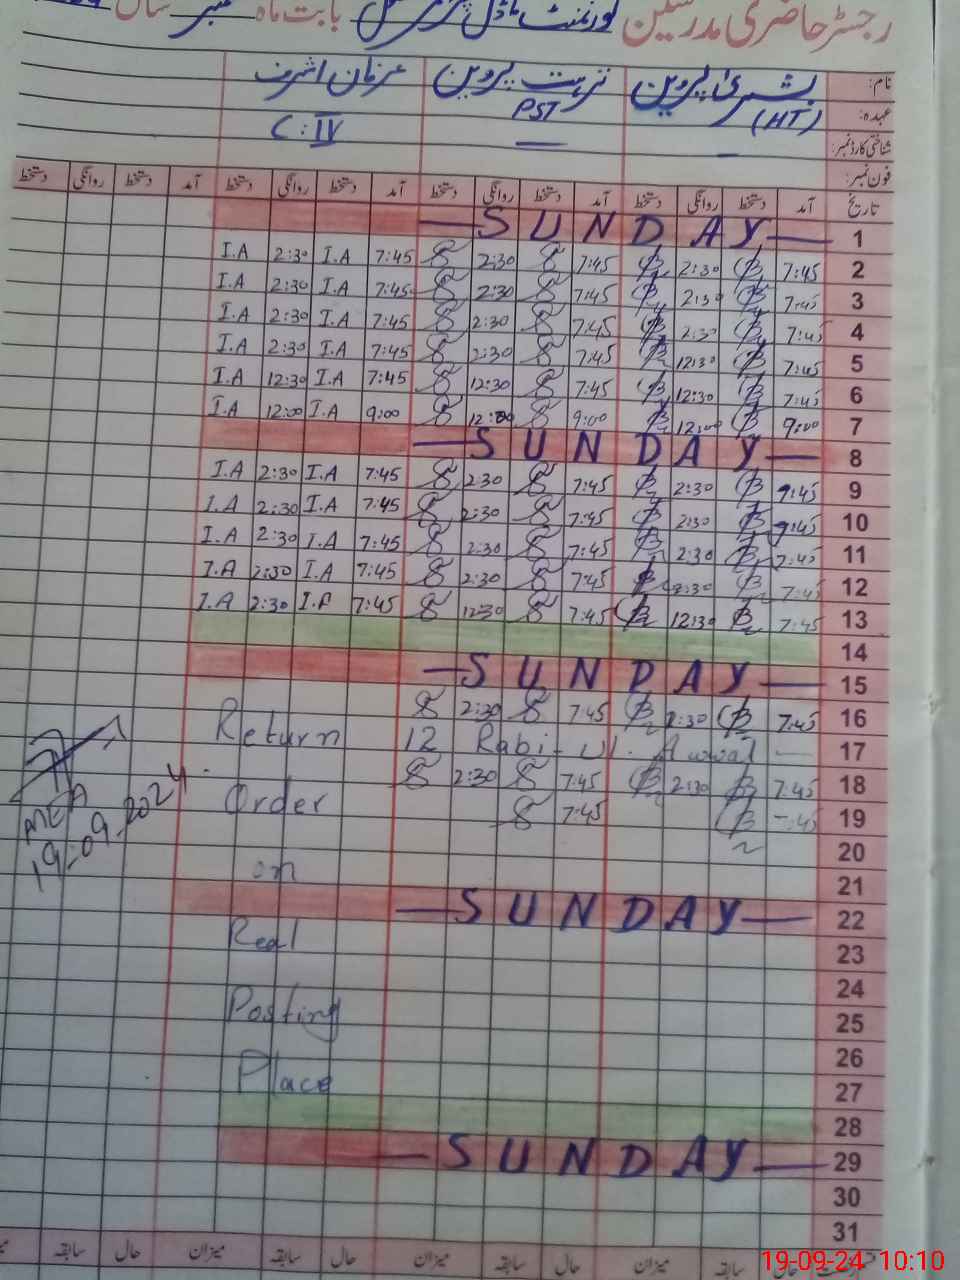 رجسٹر حاضری مدرسین گورنمنٹ ماڈل پرائمری سکول بابت ماہ ستمبر سال
نام: بشریٰ پروین نزہت پروین عرفان اشرف
عہدہ: (HT) PST C:IV
شناختی کارڈ نمبر: — —
فون نمبر:
تاریخ آمد دستخط روانگی دستخط آمد دستخط روانگی دستخط آمد دستخط روانگی دستخط آمد دستخط روانگی دستخط
— S U N D A Y — 1
I.A 2:30 I.A 7:45 2:30 7:45 2:30 7:45 2
I.A 2:30 I.A 7:45 2:30 7:45 2:30 7:45 3
I.A 2:30 I.A 7:45 2:30 7:45 2:30 7:45 4
I.A 2:30 I.A 7:45 2:30 7:45 12:30 7:45 5
I.A 12:30 I.A 7:45 12:30 7:45 12:30 7:45 6
I.A 12:00 I.A 9:00 12:00 9:00 12:00 9:00 7
— S U N D A Y — 8
I.A 2:30 I.A 7:45 2:30 7:45 2:30 7:45 9
I.A 2:30 I.A 7:45 2:30 7:45 2:30 7:45 10
I.A 2:30 I.A 7:45 2:30 7:45 2:30 7:45 11
I.A 2:30 I.A 7:45 2:30 7:45 2:30 7:45 12
I.A 2:30 I.A 7:45 12:30 7:45 12:30 7:45 13
14
— S U N D A Y — 15
2:30 7:45 2:30 7:45 16
Return 12 Rabi-ul-Awwal — 17
2:30 7:45 2:30 7:45 18
Order 7:45 7:45 19
MEA
19-09-2024
20
on 21
— S U N D A Y — 22
Real 23
24
Posting 25
26
Place 27
28
— S U N D A Y — 29
30
31
حال سابقہ میزان حال سابقہ میزان حال سابقہ میزان حال سابقہ
19-09-24 10:10